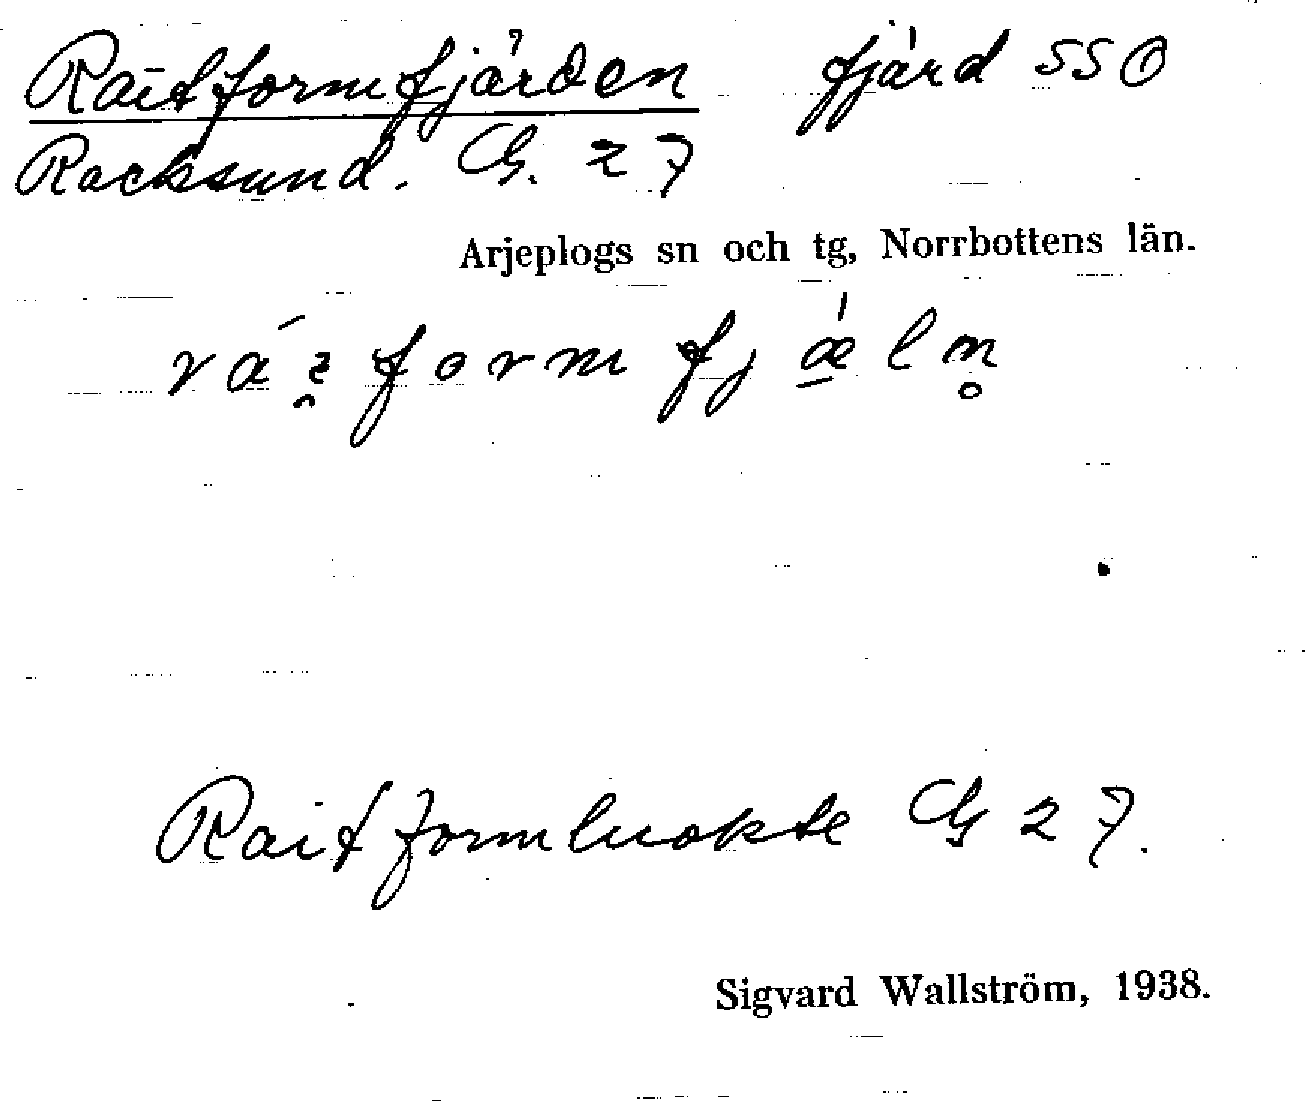 Raitformfjärden fjärd SSO
Racksund. G. 27
Arjeplogs sn och tg, Norrbottens län.
Raitformluokte G 27.
Sigvard Wallström, 1938.